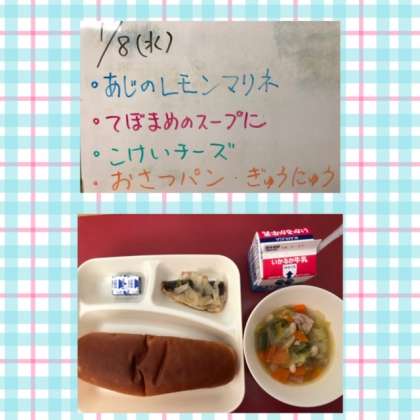 1/8(水)
・あじのレモンマリネ
・てぼまめのスープに
・こけいチーズ
・おさつパン・ぎゅうにゅう
いかるが牛乳
いかるが牛乳